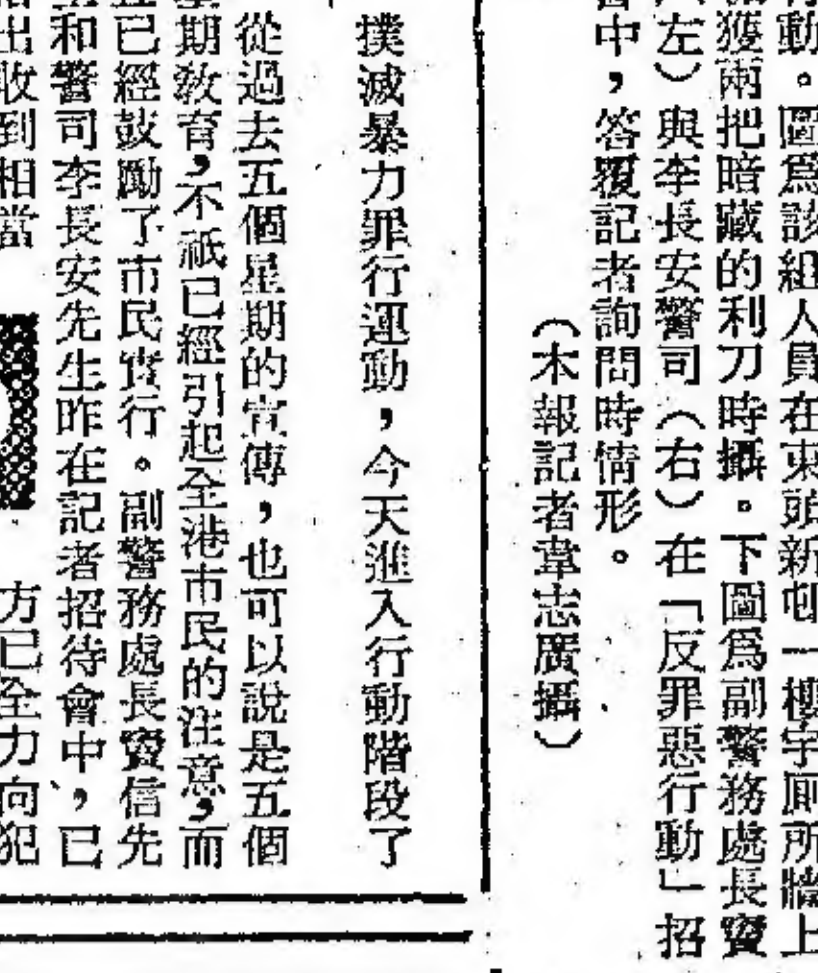 動。圖爲該組人員在東頭新邨一樓宇厠所牆上
獲兩把暗藏的利刀時攝。下圖爲副警務處長竇
（左）與李長安警司（右）在「反罪惡行動」招
中，答覆記者詢問時情形。
（本報記者韋志廣攝）
撲滅暴力罪行運動，今天進入行動階段了
從過去五個星期的宣傳，也可以說是五個
期敎育，不祇已經引起全港市民的注意，而
已經鼓勵了市民實行。副警務處長竇信先
和警司李長安先生昨在記者招待會中，已
出收到相當
方已全力向犯